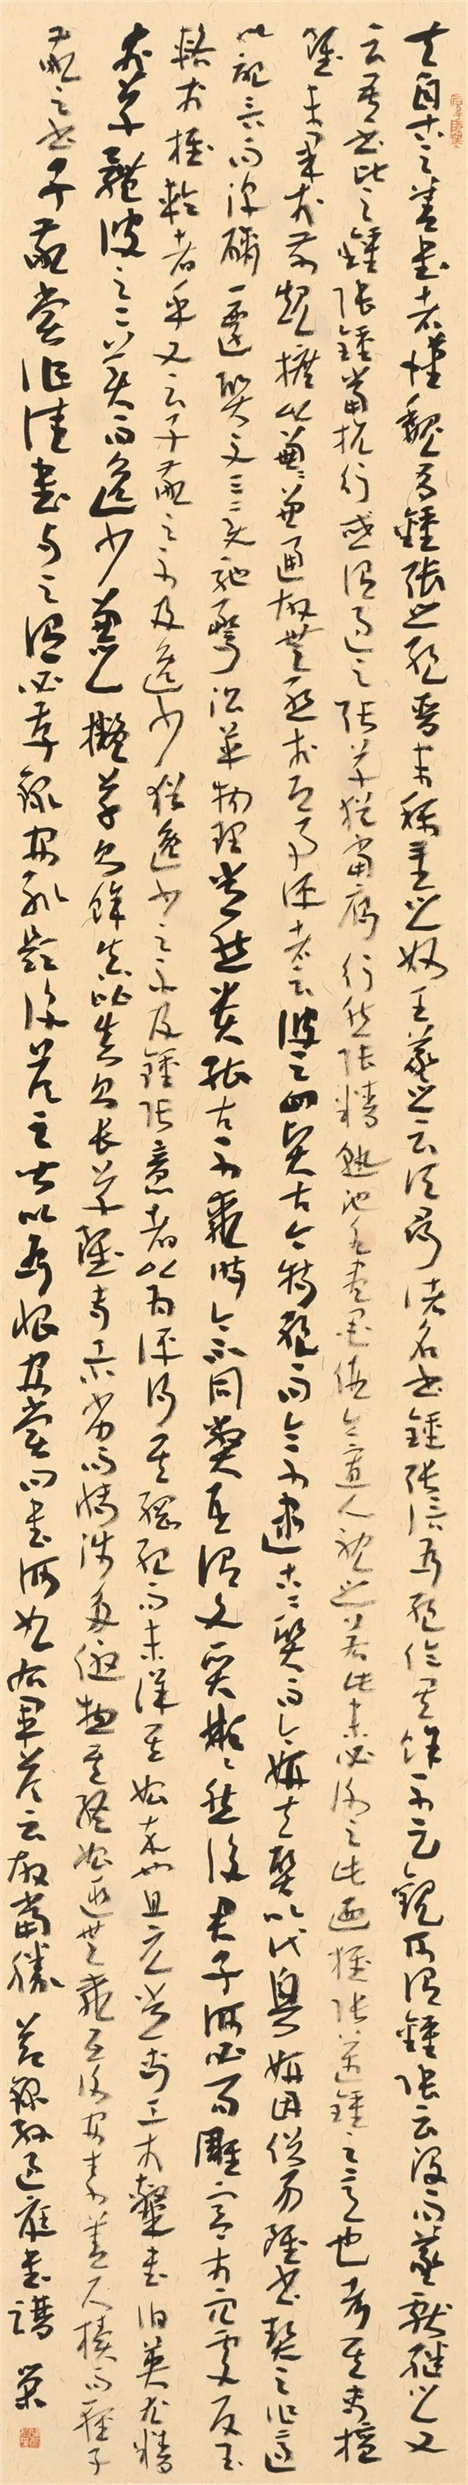 夫自古之善書者漢魏有鍾張之絶晉末稱二王之妙王羲之云頃尋諸名書鍾張信為絶倫其餘不足觀可謂鍾張云没而羲獻繼之又
云吾書比之鍾張鍾當抗行或謂過之張草猶當雁行然張精熟池水盡墨假令寡人耽之若此未必謝之此乃推張邁鍾之意也考其專擅
雖未果於前規摭以兼通故無慚於即事評者云彼之四賢古今特絶而今不逮古古質而今妍夫質以代興妍因俗易雖書契之作適
以記言而淳醨一遷質文三變馳騖沿革物理常然貴能古不乖時今不同弊所謂文質彬彬然後君子何必易雕宮於穴處反玉
輅於椎輪者乎又云子敬之不及逸少猶逸少之不及鍾張意者以為評得其綱紀而未詳其始卒也且元常專工於隸書伯英尤精
於草體彼之二美而逸少兼之擬草則餘真比真則長草雖專工小劣而博涉多優總其終始匪無乖互謝安素善尺牘而輕子
敬之書子敬嘗作佳書與之謂必存錄安輒題後答之甚以為恨安嘗問書何如右軍答云故當勝 節錄孫過庭書譜